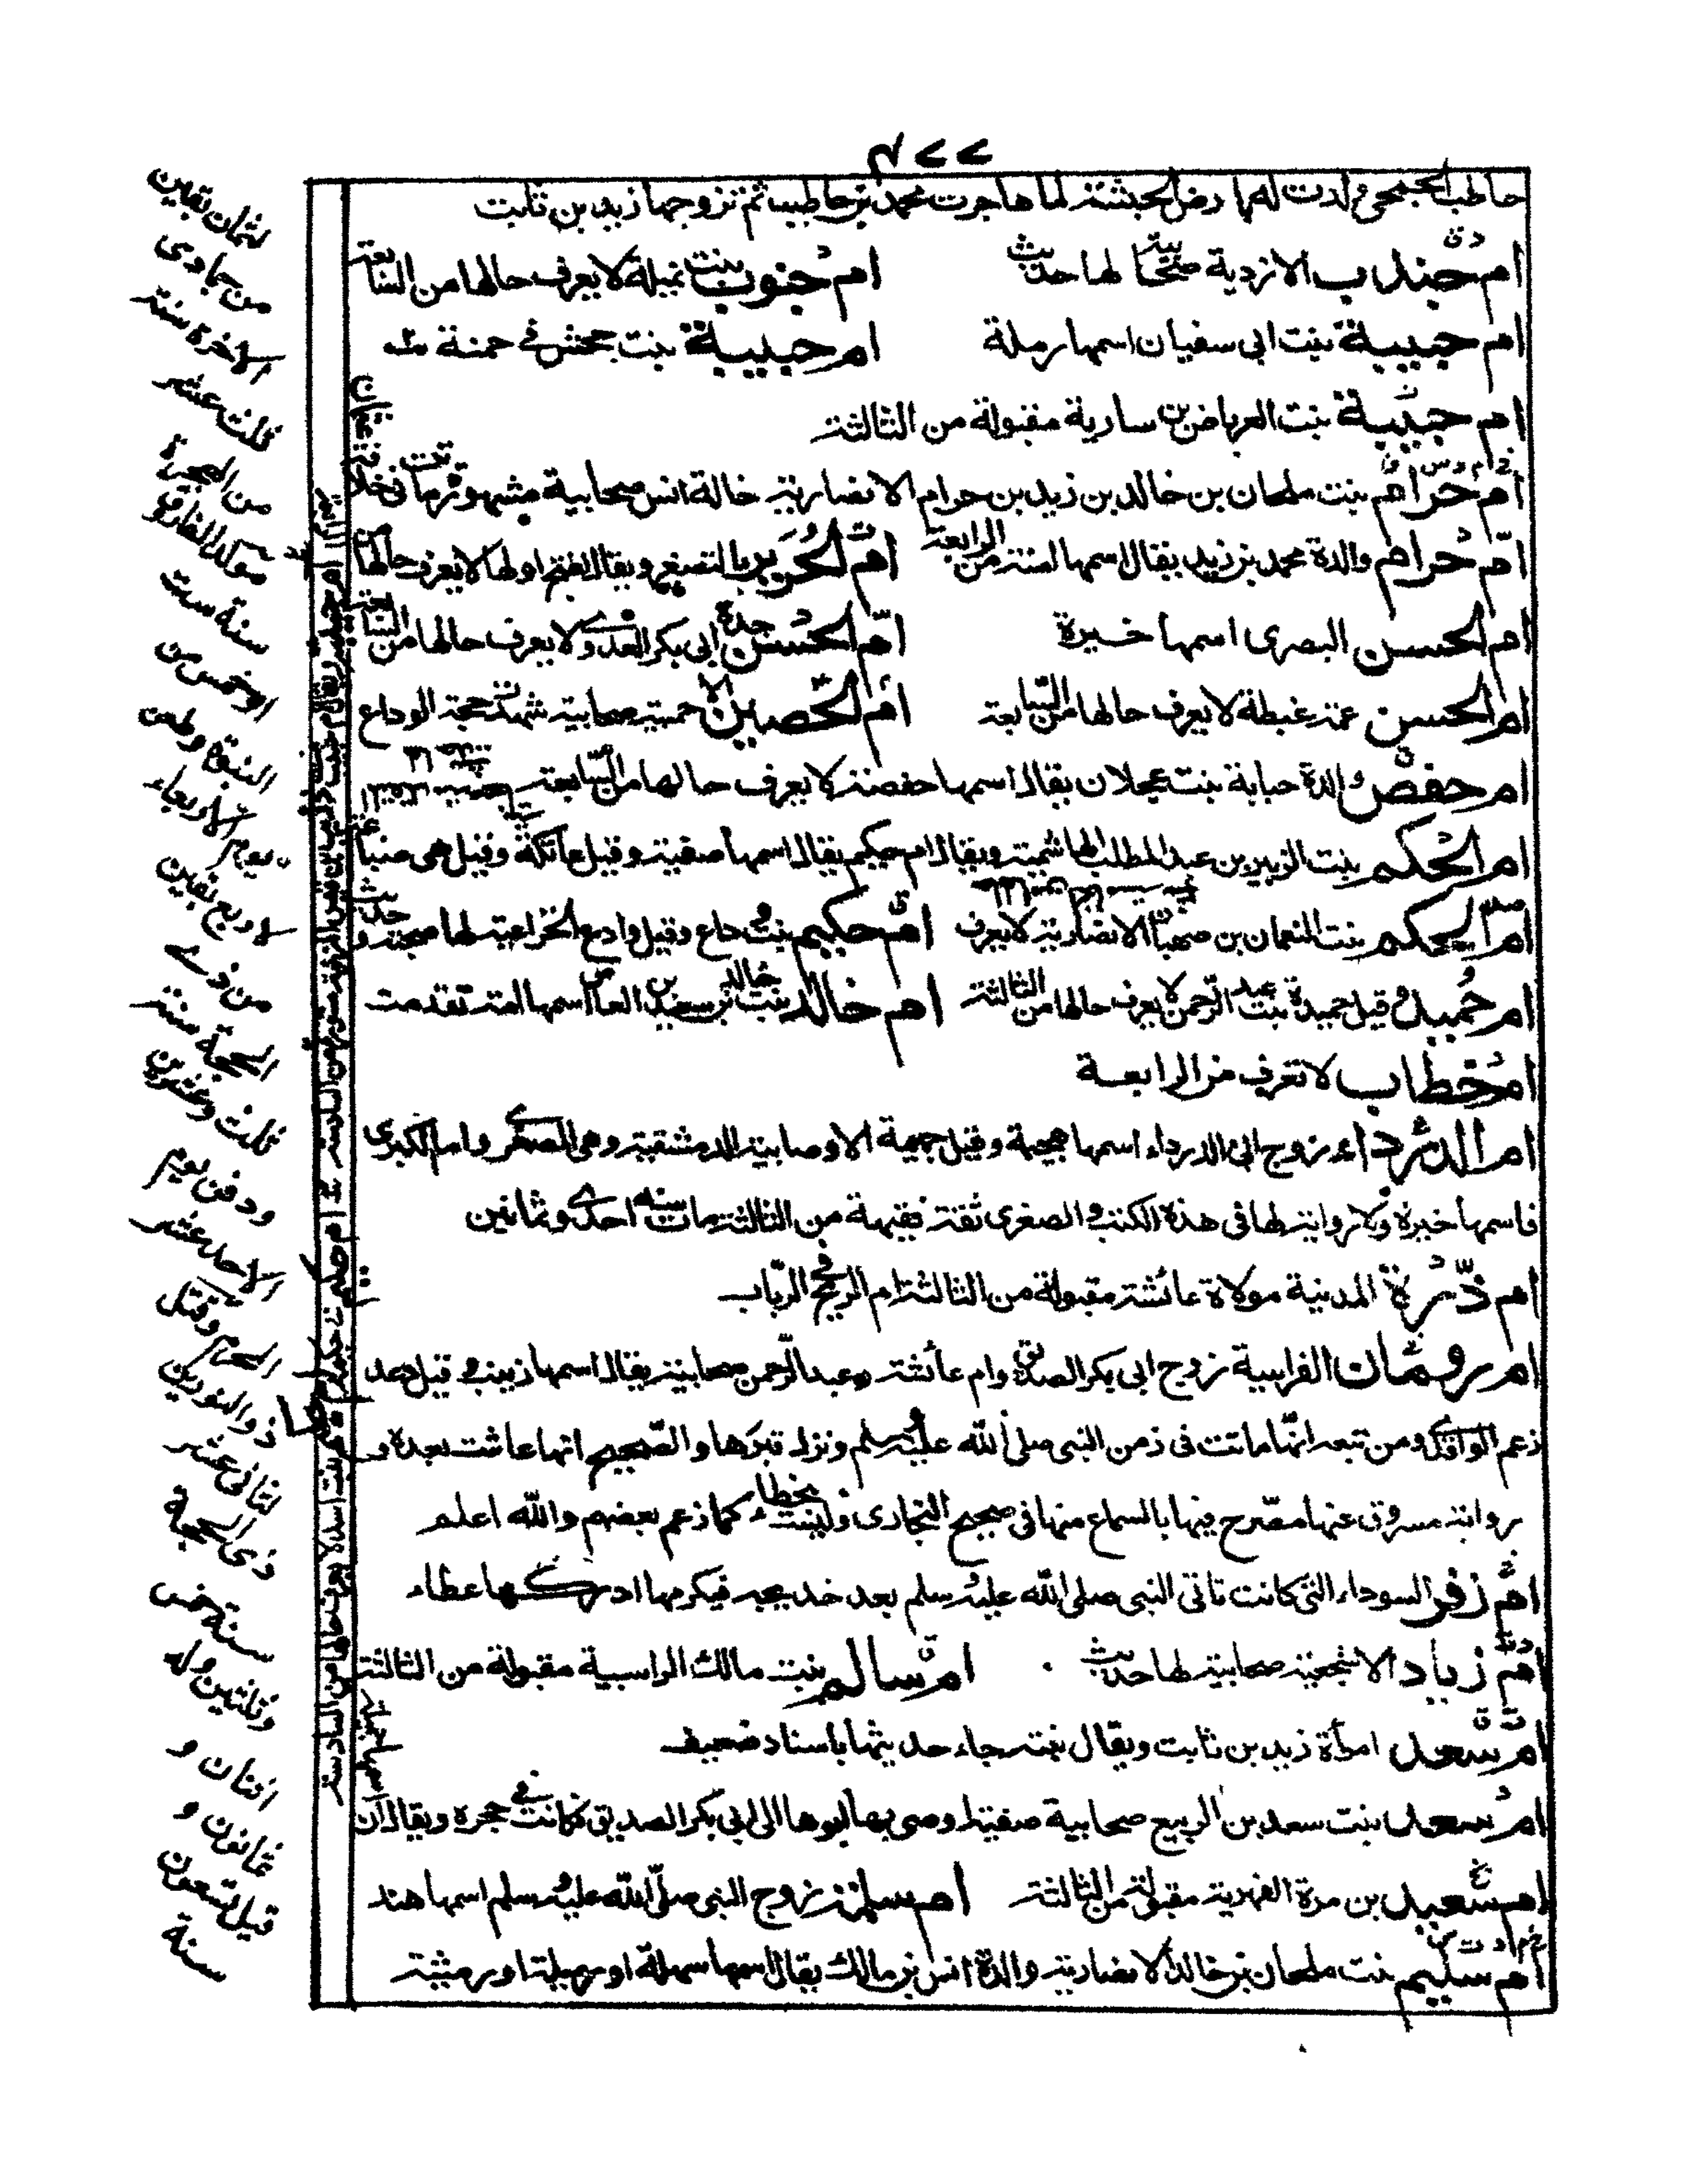 حاطب الجمحي ولدت له بارض الحبشة لما هاجرت محمد بن حاطب ثم تزوجها زيد بن ثابت
ام جندب الازدية صحابية لها حديث ام جنوب بنت نميلة لا يعرف حالها من السابعة
ام حبيبة بنت ابي سفيان اسمها رملة ام حبيبة بنت جحش في حمنة
ام حبيبة بنت العرباض بن سارية مقبولة من الثالثة
ام حرام بنت ملحان بن خالد بن زيد بن حرام الانصارية خالة انس صحابية مشهورة ماتت في خلافة عثمان
ام حرام والدة محمد بن زيد يقال اسمها امنة من الرابعة ام الحرير بالتصغير ويقال بفتح اولها لا يعرف حالها من الرابعة
ام الحسن البصري اسمها خيرة ام الحسن جدة ابي بكر العدوي لا يعرف حالها من السابعة
ام الحسن عمة غبطة لا يعرف حالها من السابعة ام الحصين الاحمسية صحابية شهدت حجة الوداع
ام حفص والدة حبابة بنت عجلان يقال اسمها حفصة لا يعرف حالها من السابعة
ام الحكم بنت الزبير بن عبد المطلب الهاشمية ويقال ام حكيم يقال اسمها صفية وقيل عاتكة وقيل هي ضباعة
ام الحكم بنت النعمان بن صهبان الانصارية لا يعرف ام حكيم بنت وداع وقيل وادع الخزاعية لها صحبة وحديث
ام حميد وقيل حميدة بنت عبد الرحمن لا يعرف حالها من الثالثة ام خالد بنت خالد بن سعيد بن العاص اسمها امة تقدمت
ام خطاب لا تعرف من الرابعة
ام الدرداء زوج ابي الدرداء اسمها هجيمة وقيل جهيمة الاوصابية الدمشقية وهي الصغرى واما الكبرى
فاسمها خيرة ولا رواية لها في هذه الكتب والصغرى ثقة فقيهة من الثالثة مات سنة احدى وثمانين
ام ذرة المدنية مولاة عائشة مقبولة من الثالثة ام الرائح في الرباب
ام رومان الفراسية زوج ابي بكر الصديق وام عائشة وعبد الرحمن صحابية يقال اسمها زينب وقيل دعد
زعم الواقدي ومن تبعه انها ماتت في زمن النبي صلى الله عليه وسلم ونزل قبرها والصحيح انها عاشت بعده و
رواية مسروق عنها مصرح فيها بالسماع منها في صحيح البخاري وليست بخطاء كما زعم بعضهم والله اعلم
ام زفر السوداء التي كانت تاتي النبي صلى الله عليه وسلم بعد خديجه فيكرمها ادركها عطاء
ام زياد الاشجعية صحابية لها حديث ام سالم بنت مالك الراسبية مقبولة من الثالثة
ام سعد امرأة زيد بن ثابت ويقال بنته جاء حديثها باسناد ضعيف
ام سعد بنت سعد بن الربيع صحابية صغيرة اوصى بها ابوها الى ابي بكر الصديق فكانت في حجره ويقال ان اسمها جميلة
ام سعيد بن مرة الفهرية مقبولة من الثالثة ام سلمة زوج النبي صلى الله عليه وسلم اسمها هند
ام سليم بنت ملحان بن خالد الانصارية والدة انس بن مالك يقال اسمها سهلة او رميلة او رميثة
لثمان بقين
من جمادى
الاخرة سنة
ثلث عشر
من الهجرة
مولد الفاروق
سنة ست
او خمس من
النبوة وطعن
يوم الاربعاء
لاربع بقين
من ذي
الحجة سنة
ثلث وعشرين
ودفن يوم
الاحد عشر
المحرم وقتل
ذو النورين
لثاني عشر
ذي الحجة
سنة خمس
وثلثين وله
اثنان و
ثمانون و
قيل تسعون
سنة